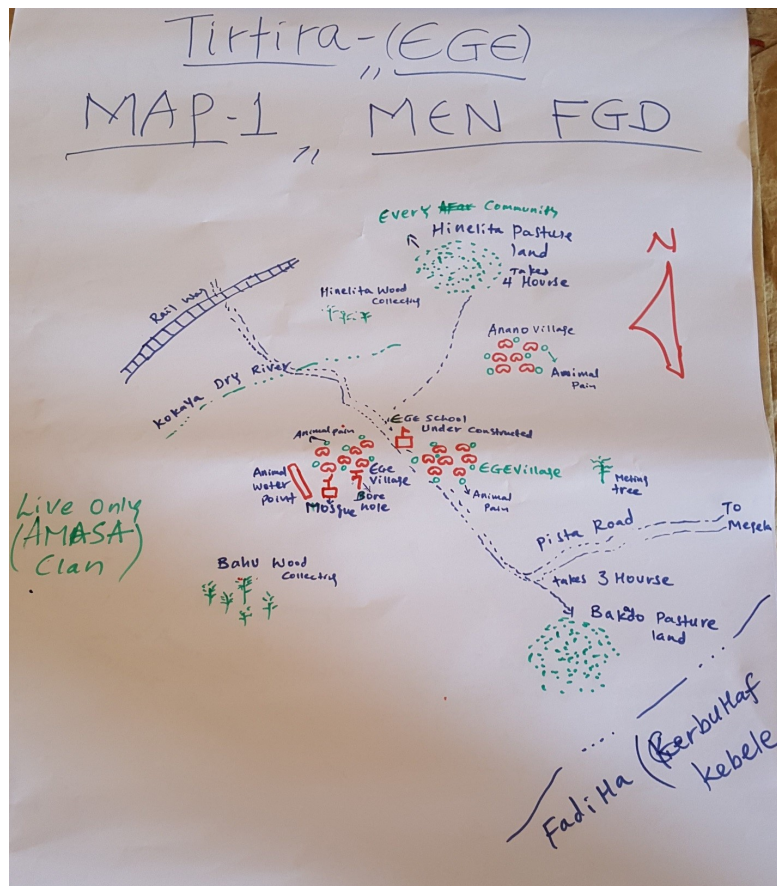 Tirtira-(EGE)
MAP-1 ,, MEN FGD
Every Community
Hinelita Pasture
land
Takes
4 Hourse
N
Rail Way
Hinelita Wood
Collecting
Anano Village
Animal
Pain
Kokaya Dry River
EGE School
Under Constructed
Animal pain
Animal
Water
Point
EGE
Village
Bore
hole
Mosque
EGE Village
Animal
Pain
Meting
tree
Live Only
(AMASA)
Clan
Bahu Wood
Collecting
Pista Road
To
takes 3 Hourse
Bakdo Pasture
land
Fadiha (Kerbuhaf
kebele